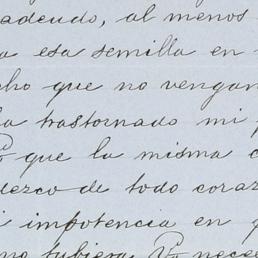 adeudo, al menos
a esa semilla en
cho que no vengan
a trastornado mi
que la misma c
dezco de todo coraz
i impotencia en
no tubiera nece